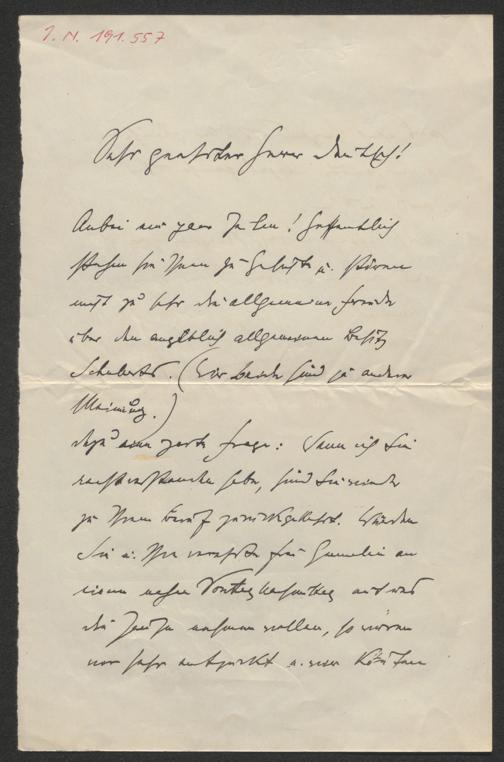 I. N. 191.557
Sehr geehrter Herr Deutsch!
Anbei ein paar Zeilen! Hoffentlich
stehen sie Ihnen zu Gesicht u. stören
nicht zu sehr die allgemeine Freude
über den angeblich allgemeinen Besitz
Schuberts. (Wir beide sind ja anderer
Meinung.)
Dazu eine zarte Frage: Wenn ich Sie
recht verstanden habe, sind Sie wieder
zu Ihrem Beruf zurückgekehrt. Würden
Sie u. Ihre verehrte Frau Gemalin an
einem nahen
die Jause nehmen wollen, so wären
wir sehr entzückt u. wir könnten